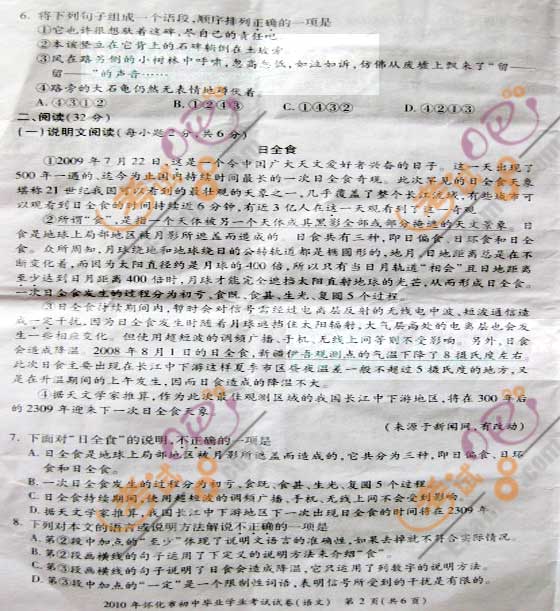 6. 将下列句子组成一个语段,顺序排列正确的一项是
①它也许很想驮着这碑,尽自己的责任吧
②本该竖立在它背上的石碑躺倒在土坡旁
③风在路另侧的小树林中呼啸,忽高忽低,如泣如诉,仿佛从废墟上飘来了“留——
留——”的声音……
④路旁的大石龟仍然无表情地蹲伏着
A. ④③①② B. ①②④③ C. ①④③② D. ④②①③
二、阅读(32分)
(一)说明文阅读(每小题2分,共6分)
日全食
①2009年7月22日,这是一个令中国广大天文爱好者兴奋的日子。这一天出现了
500年一遇的,迄今为止国内持续时间最长的一次日全食奇观。此次罕见的日全食天象
堪称21世纪我国可以看到的最壮观的天象之一,几乎覆盖了整个长江流域,有些城市可
以观看到日全食的时间持续近6分钟,有近3亿人在这一天观看到了这一奇观。
②所谓“食”,是指一个天体被另一个天体或其黑影全部或部分掩遮的天文景象。日
食是地球上局部地区被月影所遮盖而造成的。日食共有三种,即日偏食、日环食和日全
食。众所周知,月球绕地和地球绕日的公转轨道都是椭圆形的,地月、日地距离总是在不
断变化着,而因为太阳直径约是月球的400倍,所以只有当日月轨道“相会”且日地距离
至少达到日月距离400倍时,月球才能完全遮挡太阳直射地球的光芒,从而形成日全食。
一次日全食发生的过程分为初亏、食既、食甚、生光、复圆5个过程。
③日全食持续期间内,暂时会对信号需经过电离层反射的无线电中波、短波通信造
成一定干扰,因为日全食发生时随着月球遮挡住太阳辐射,大气层高处的电离层也会发
生一些相应变化。但使用超短波的调频广播、手机、无线上网等则不受影响。另外,日食
会造成降温。2008年8月1日的日全食,新疆伊吾观测点的气温下降了8摄氏度左右。
此次日食主要出现在长江中下游这样夏季市区昼夜温差一般不超过5摄氏度的地方,又
是在升温期间的上午发生,因而日食造成的降温不大。
④据天文学家推算,作为此次最佳观测区域的我国长江中下游地区,将在300年后
的2309年迎来下一次日全食天象
(来源于新闻网,有改动)
7. 下面对“日全食”的说明,不正确的一项是
A. 日全食是地球上局部地区被月影所遮盖而造成的,它共分为三种,即日偏食、日环
食和日全食。
B. 一次日全食发生的过程分为初亏、食既、食甚、生光、复圆5个过程
C. 日全食持续期间,使用超短波的调频广播、手机、无线上网不会受到影响。
D. 据天文学家推算,我国长江中下游地区下一次出现日全食的时间将在2309年
8. 下列对本文的语言或说明方法解说不正确的一项是
A. 第②段中加点的“至少”体现了说明文语言的准确性,如果去掉就不符合实际情况。
B. 第②段画横线的句子运用了下定义的说明方法来介绍“食”。
C. 第③段画横线的句子说明了日食会造成降温,它只运用了列数字的说明方法
D. 第③段中加点的“一定”是一个限制性词语,表明信号所受到的干扰是有限的。
2010年怀化市初中毕业学业考试试卷(语文) 第2页(共6页)